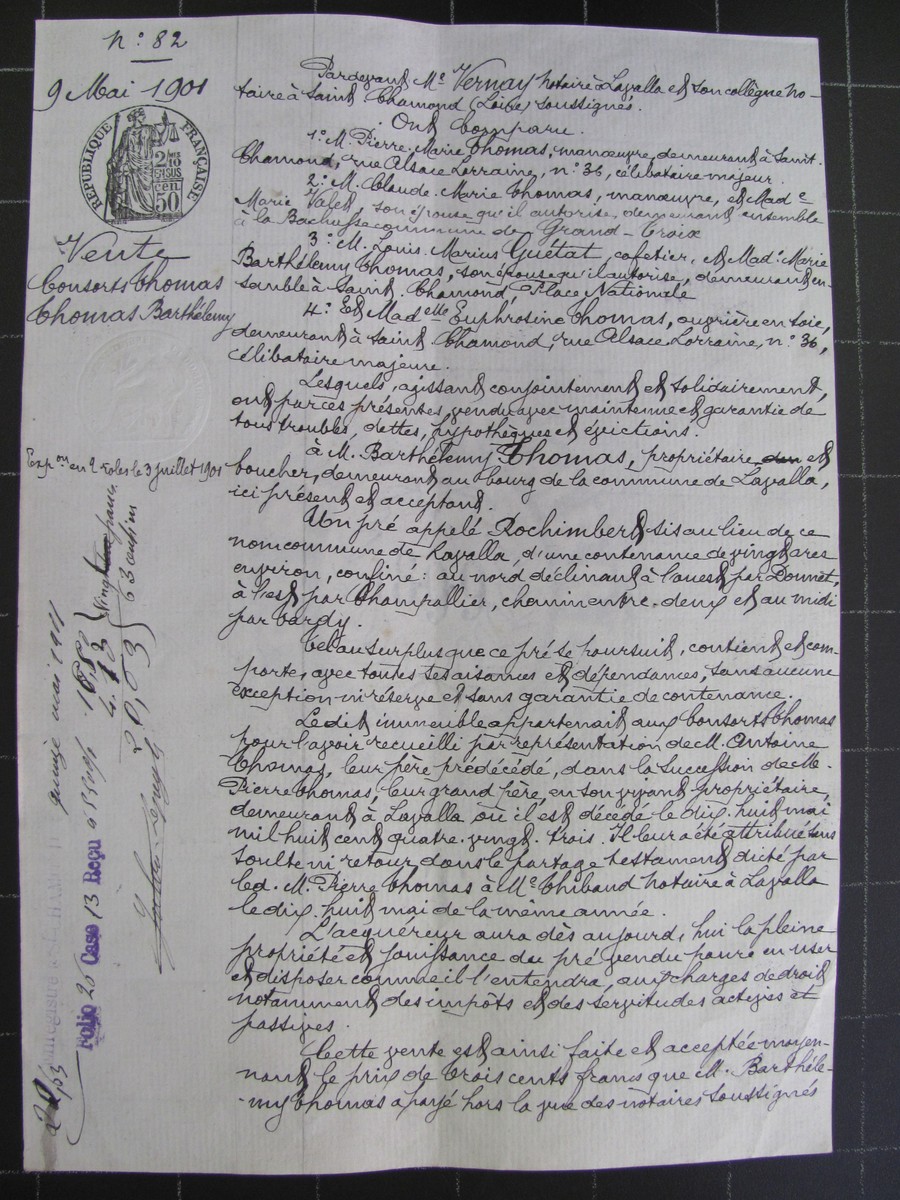 N° 82
9 Mai 1901
RÉPUBLIQUE FRANÇAISE
2/10 EN SUS
50 CEN
Vente
Consorts Thomas
Thomas Barthélemy
Exp.on en 2 roles le 3 juillet 1901
Pardevant Me Vernay notaire à Lavalla et son collègue no-
taire à Saint Chamond (Loire) soussignés.
Ont Comparu.
1° M. Pierre Marie Thomas, manœuvre, demeurant à Saint.
Chamond, rue Alsace Lorraine, n° 36, célibataire majeur.
2° M. Claude. Marie Thomas, manœuvre, et Made
Marie Valet, son épouse qu'il autorise, demeurant ensemble
à la Bachasse commune de Grand-Croix
3° M. Louis Marius Guétat, cafetier, et Made Marie
Barthélemy Thomas, son épouse qu'il autorise, demeurant en-
semble à Saint. Chamond, Place Nationale
4° Et Madelle Euphrosine Thomas, ouvrière en soie,
demeurant à Saint Chamond, rue Alsace Lorraine, n° 36,
célibataire majeure.
Lesquels, agissant conjointement et solidairement,
ont par ces présentes, vendu avec maintenue et garantie de
tous troubles, dettes, hypothèques et évictions.
à M. Barthélemy Thomas, propriétaire et
boucher, demeurant au bourg de la commune de Lavalla,
ici présent et acceptant.
Un pré appelé Rochimbert sis au lieu de ce
nom commune de Lavalla, d'une contenance de vingt ares
environ, confiné: au nord déclinant à l'ouest par Donnet,
à l'est par Champallier, chemin entre-deux et au midi
par Tardy.
Tel au surplus que ce pré se poursuit, contient et com-
porte, avec toutes ses aisances et dépendances, sans aucune
exception ni réserve et sans garantie de contenance.
Le dit immeuble appartenait aux Consorts Thomas
pour l'avoir recueilli par représentation de M. Antoine
Thomas, leur père prédécédé, dans la succession de M.
Pierre Thomas, leur grand père, en son vivant propriétaire,
demeurant à Lavalla où il est décédé le dix. huit mai
mil huit cent quatre. vingt. trois. Il leur a été attribué sans
soulte ni retour dans le partage testament dicté par
led. M. Pierre Thomas à Me Thibaud notaire à Lavalla
le dix. huit mai de la même année.
L'acquéreur aura dès aujourd'hui la pleine
propriété et jouissance du pré vendu pour en user
et disposer comme il l'entendra, aux charges de droit
notamment des impôts et des servitudes actives et
passives.
Cette vente est ainsi faite et acceptée moyen-
nant le prix de trois cents francs que M. Barthéle-
my Thomas a payé hors la vue des notaires soussignés
Folio 20 Case 13 Reçu
4.13
20,63
63 centimes